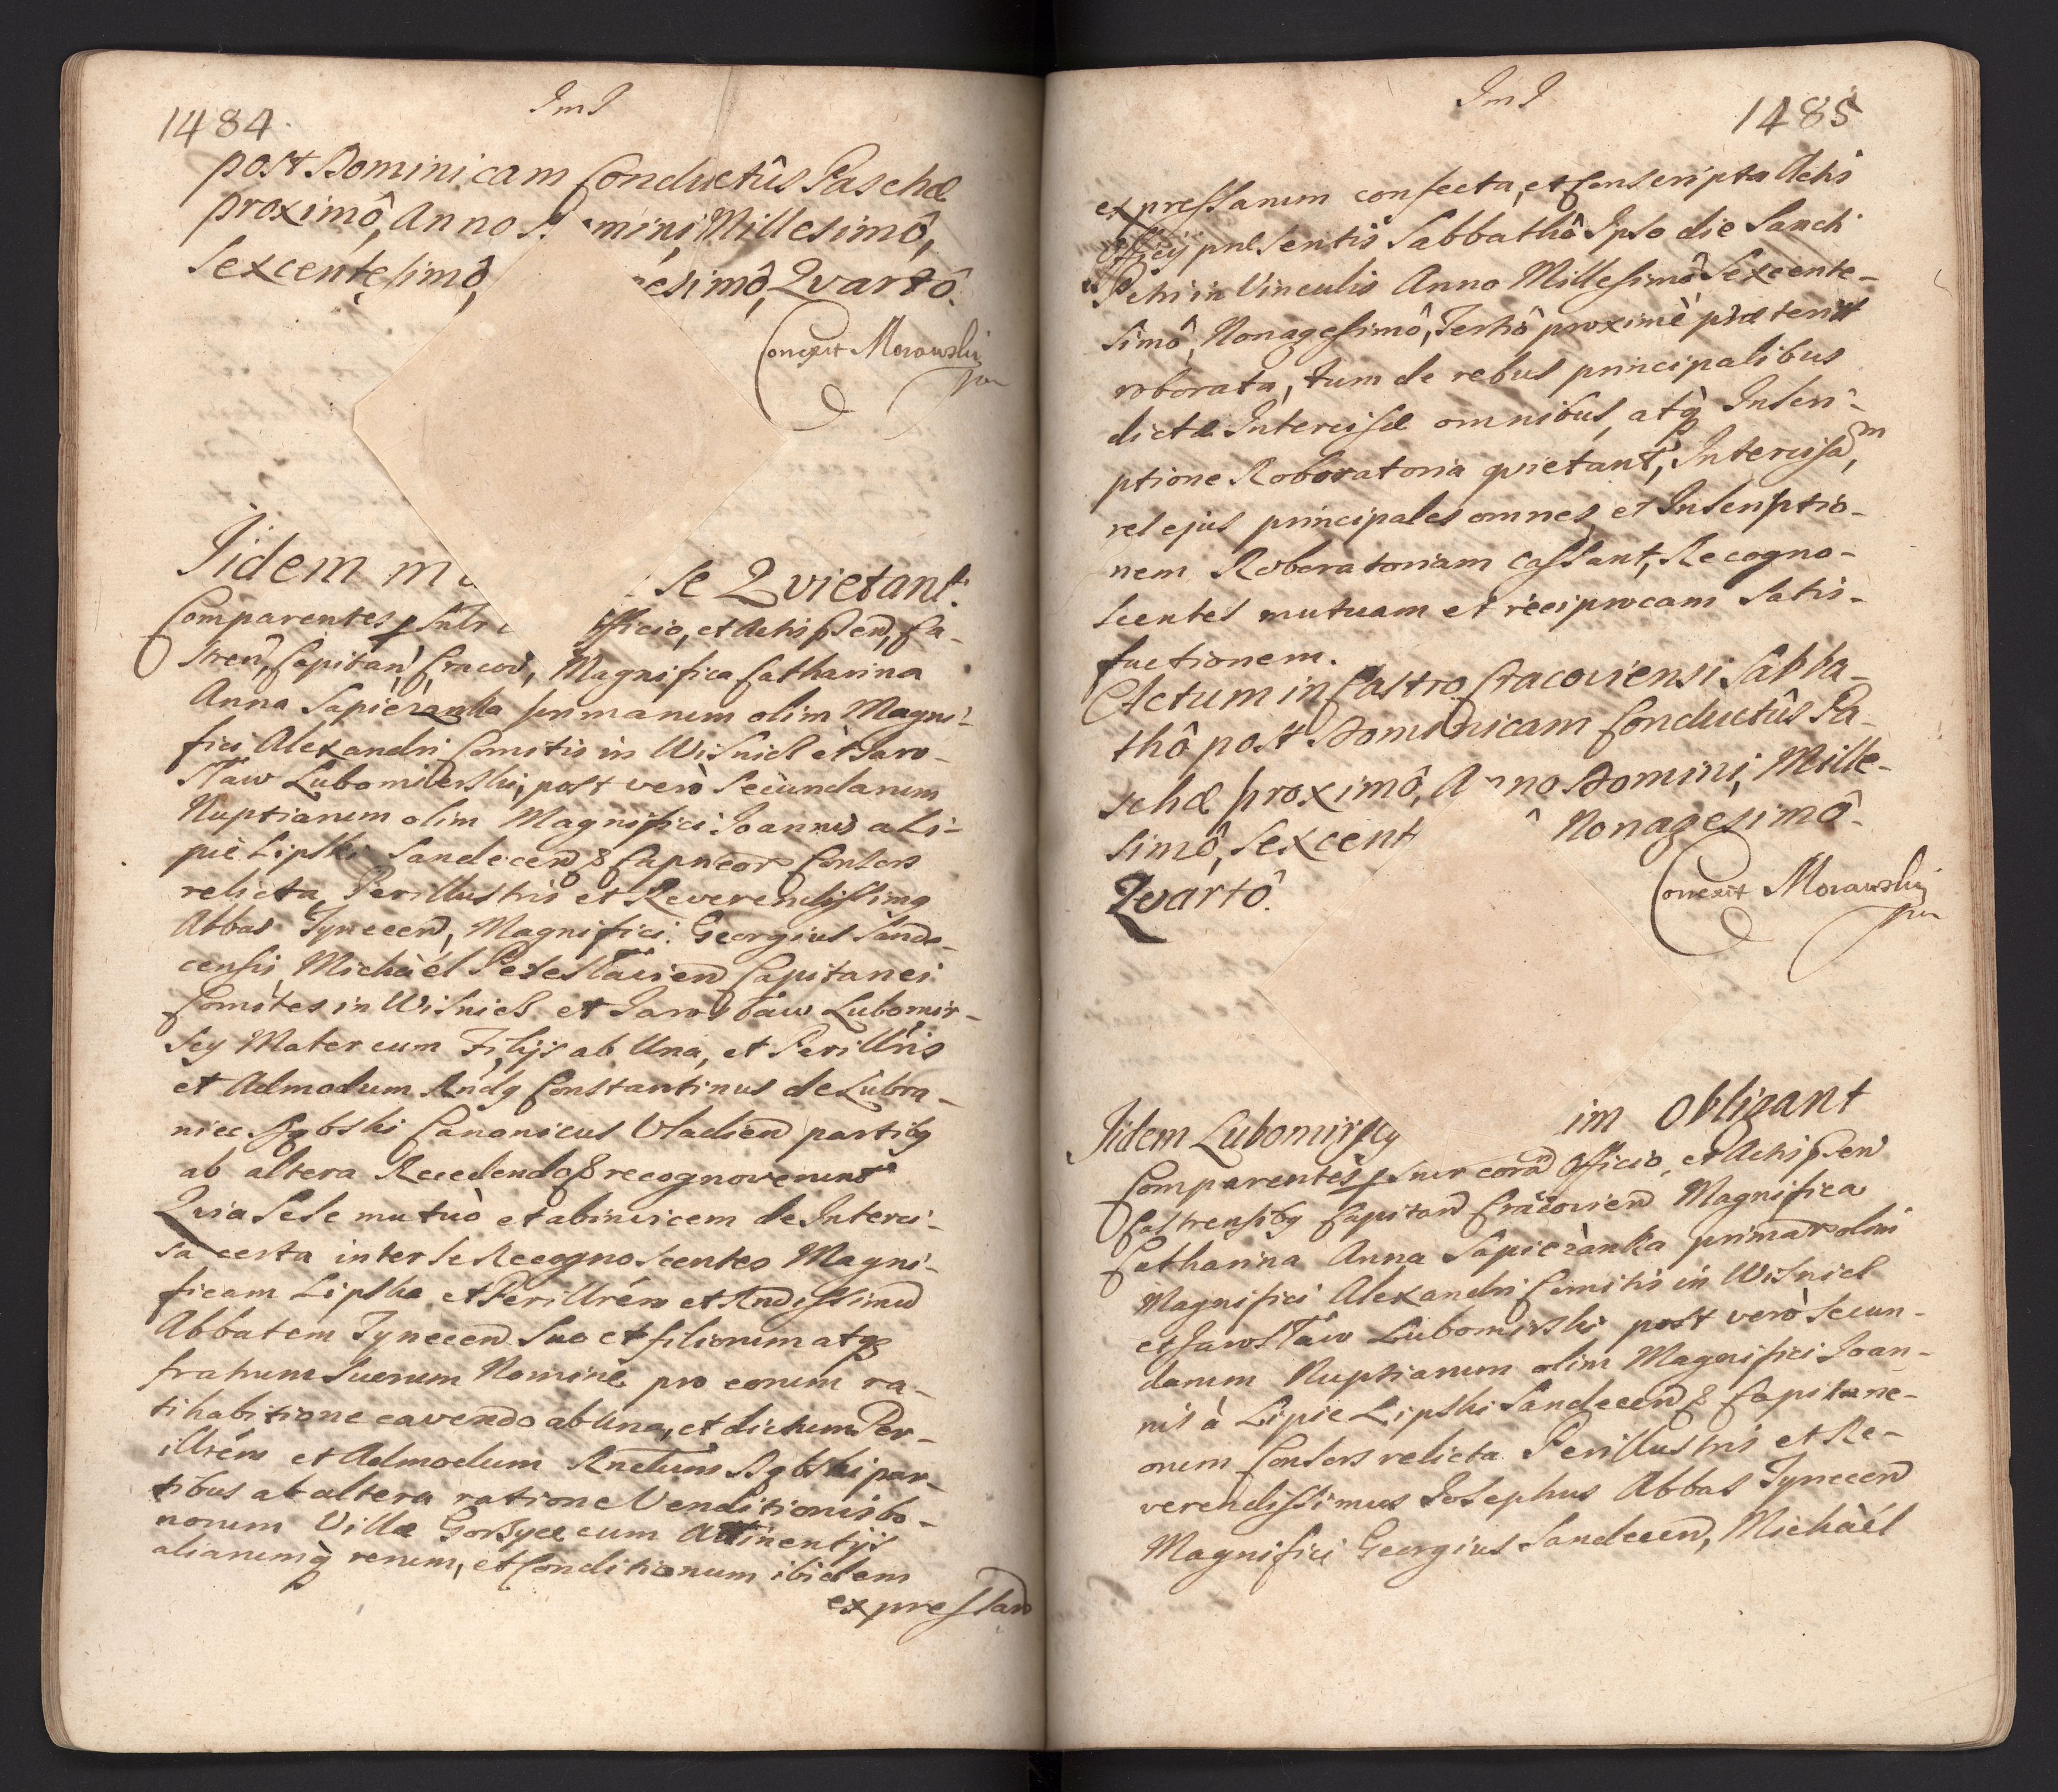 1484
ImI
post Dominicam Conductûs Paschæ
proximô, Anno D mini Millesimô,
Sexcentesimô, esimô, Qvartô.
Conexit Morawski
Jidem mu se Qvietant.
Comparentes psntr fficio, et Actis psen, Ca-
stren, Capitan, Cracov, Magnifica Catharina
Anna Sapiezanka primarum olim Magni-
fici Alexandri Comitis in Wisnicz et Jaro-
sław Lubomirski, post verò Secundarum
Nuptiarum olim Magnifici Joannis a Li-
pie Lipski Sandecen & Capneor Consors
relicta, Perillustris et Reverendissimq
Abbas Tynecen, Magnifici Georgius Sande-
censis Michaël Capitanei
Comites in Wisnicz et Jarosław Lubomir-
scy Mater cum Filijs ab Una, et Perillris
et Admodum Rndq Constantinus de Lubra-
niec Canonicus Vladien partibq
ab altera Recedendo & recognoverunt
Qvia Sese mutuò et abinvicem de Interci-
sa certa inter se Recognoscentes Magni-
ficam Lipska et Perillrem et Rndissimu
Abbatem Tynecen Suo et filiorum atq
fratrum Suorum Nomine pro eorum ra-
tihabitione cavendo ab Una, et dictum Per-
illrem et Admodum Rndum partibus
tibus ab altera ratione Venditionis bo-
norum Villæ Gorzyce cum Attinentijs
aliarumq rerum, et Conditionum ibidem
expressar
ImI
1485
expressarum confecta, et Conscripta Actis
Officij præsentis Sabbathô Ipso die Sancti
Petri in Vinculis Anno Millesimô Sexcente-
simô, Nonagesimô, Tertiô proximè præterit
roborata, tum de rebus principalibus
dictæ Intercisæ omnibus, atq Inscri-
ptione Roboratoria qvietant, Intercisam,
vel ejus principales omnes et Inscriptio-
nem Roboratoriam Cassant, Recogno-
scentes mutuam et reciprocam Satis-
factionem.
Actum in Castro Cracoviensi Sabba-
thô post Dominicam Conductûs Pa-
schæ proximô, Anno Domini, Mille-
simô, Sexcent ô Nonagesimô
Qvartô.
Conexit Morawski
Jidem Lubomirscy im Obligant
Comparentes psnr coram Officio, et Actis psen
Castrensibq Capitan Cracovien Magnifica
Catharina Anna Sapiezanka primar olim
Magnifici Alexandri Comitis in Wisnicz
et Jarosław Lubomirski post verò Secun-
darum Nuptiarum olim Magnifici Joan-
nis à Lipie Lipski Sandecen & Capitane-
orum Consors relicta Perillustris et Re-
verendissimus Josephus Abbas Tynecen
Magnifici Georgius Sandecen, Michaël